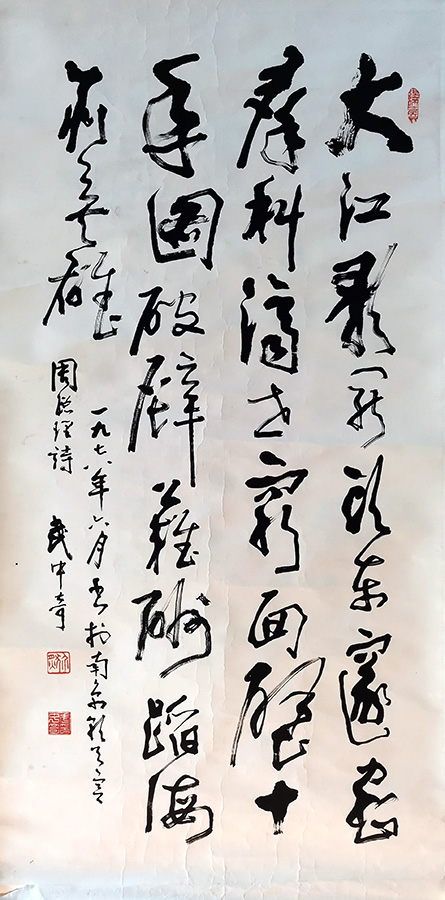 大江歌罷頭東邃密
群科濟世窮面壁十
年圖破壁難酬蹈海
亦英雄
周總理詩
一九七八年六月书於南京
武中奇